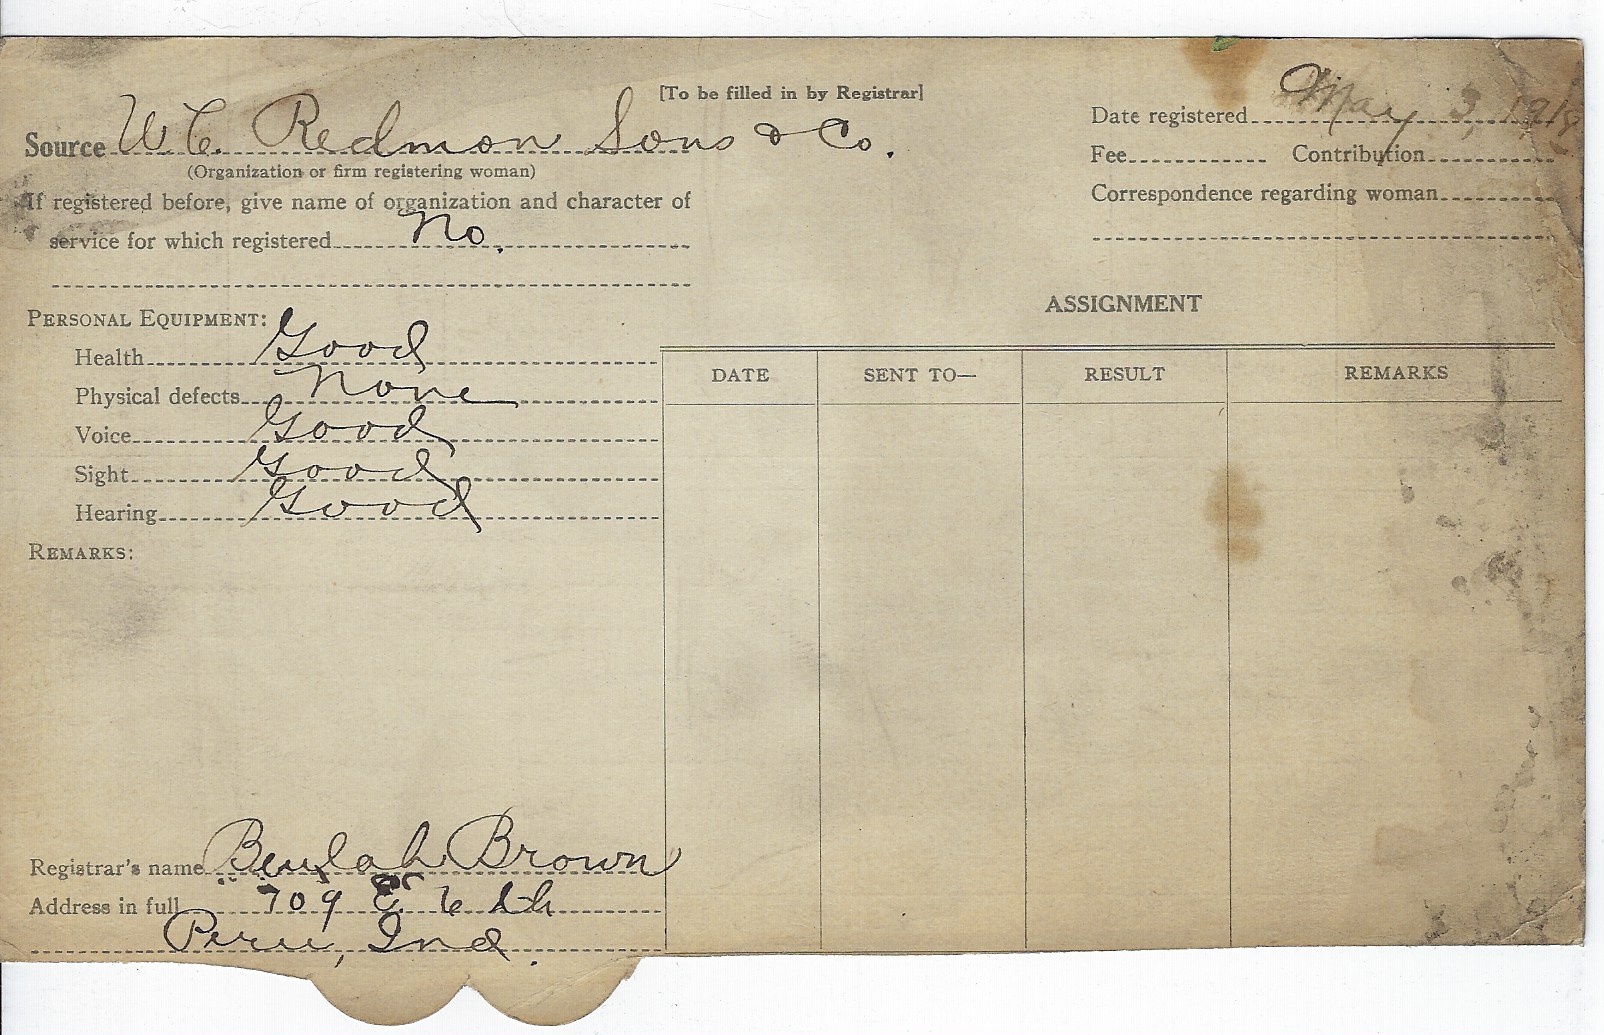 [To be filled in by Registrar]
Source W. C. Redmon Sons & Co.
(Organization or firm registering woman)
If registered before, give name of organization and character of
service for which registered No.
Date registered May 3, 1918
Fee Contribution
Correspondence regarding woman
PERSONAL EQUIPMENT:
Health Good
Physical defects None
Voice Good
Sight Good
Hearing Good
REMARKS:
ASSIGNMENT
DATE SENT TO— RESULT REMARKS
Registrar's name Beulah Brown
Address in full 709 E. 6 th
Peru, Ind.